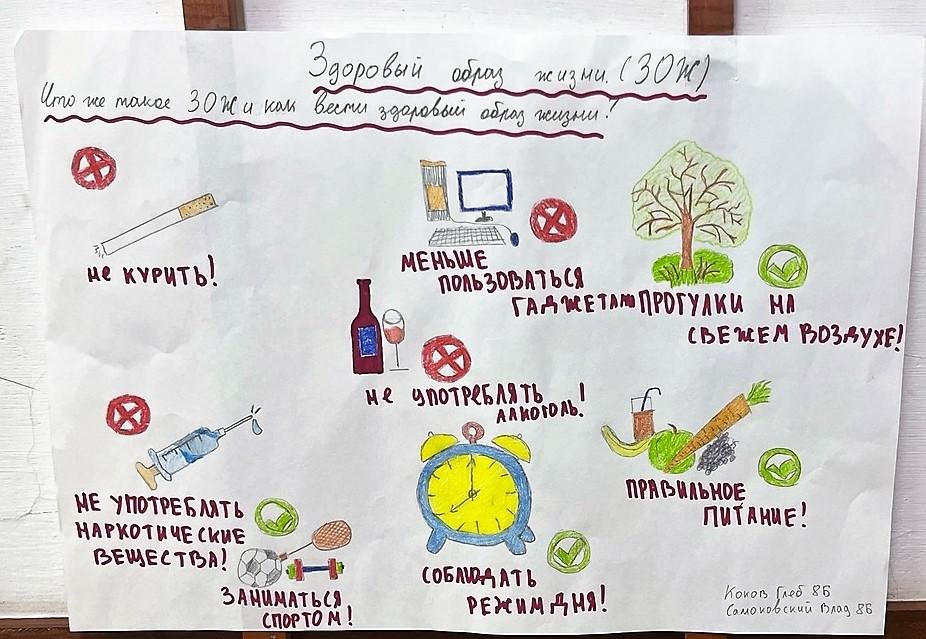 Здоровый образ жизни. (ЗОЖ)
Что же такое ЗОЖ и как вести здоровый образ жизни?
НЕ КУРИТЬ!
МЕНЬШЕ
ПОЛЬЗОВАТЬСЯ
ГАДЖЕТАМИ
ПРОГУЛКИ НА
СВЕЖЕМ ВОЗДУХЕ!
НЕ УПОТРЕБЛЯТЬ
АЛКОГОЛЬ!
НЕ УПОТРЕБЛЯТЬ
НАРКОТИЧЕСКИЕ
ВЕЩЕСТВА!
ЗАНИМАТЬСЯ
СПОРТОМ!
СОБЛЮДАТЬ
РЕЖИМ ДНЯ!
ПРАВИЛЬНОЕ
ПИТАНИЕ!
Коков Глеб 8Б
Самоковский Влад 8Б